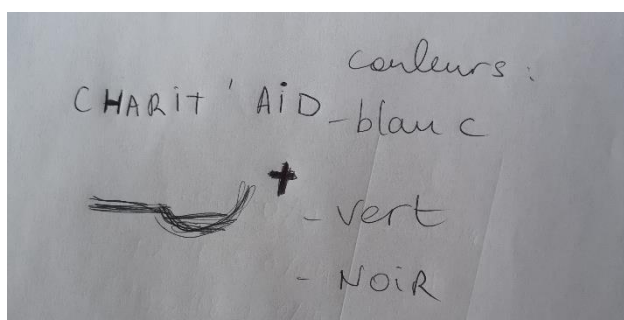 couleurs :
CHARiT'AiD
- blanc
- vert
- NOiR